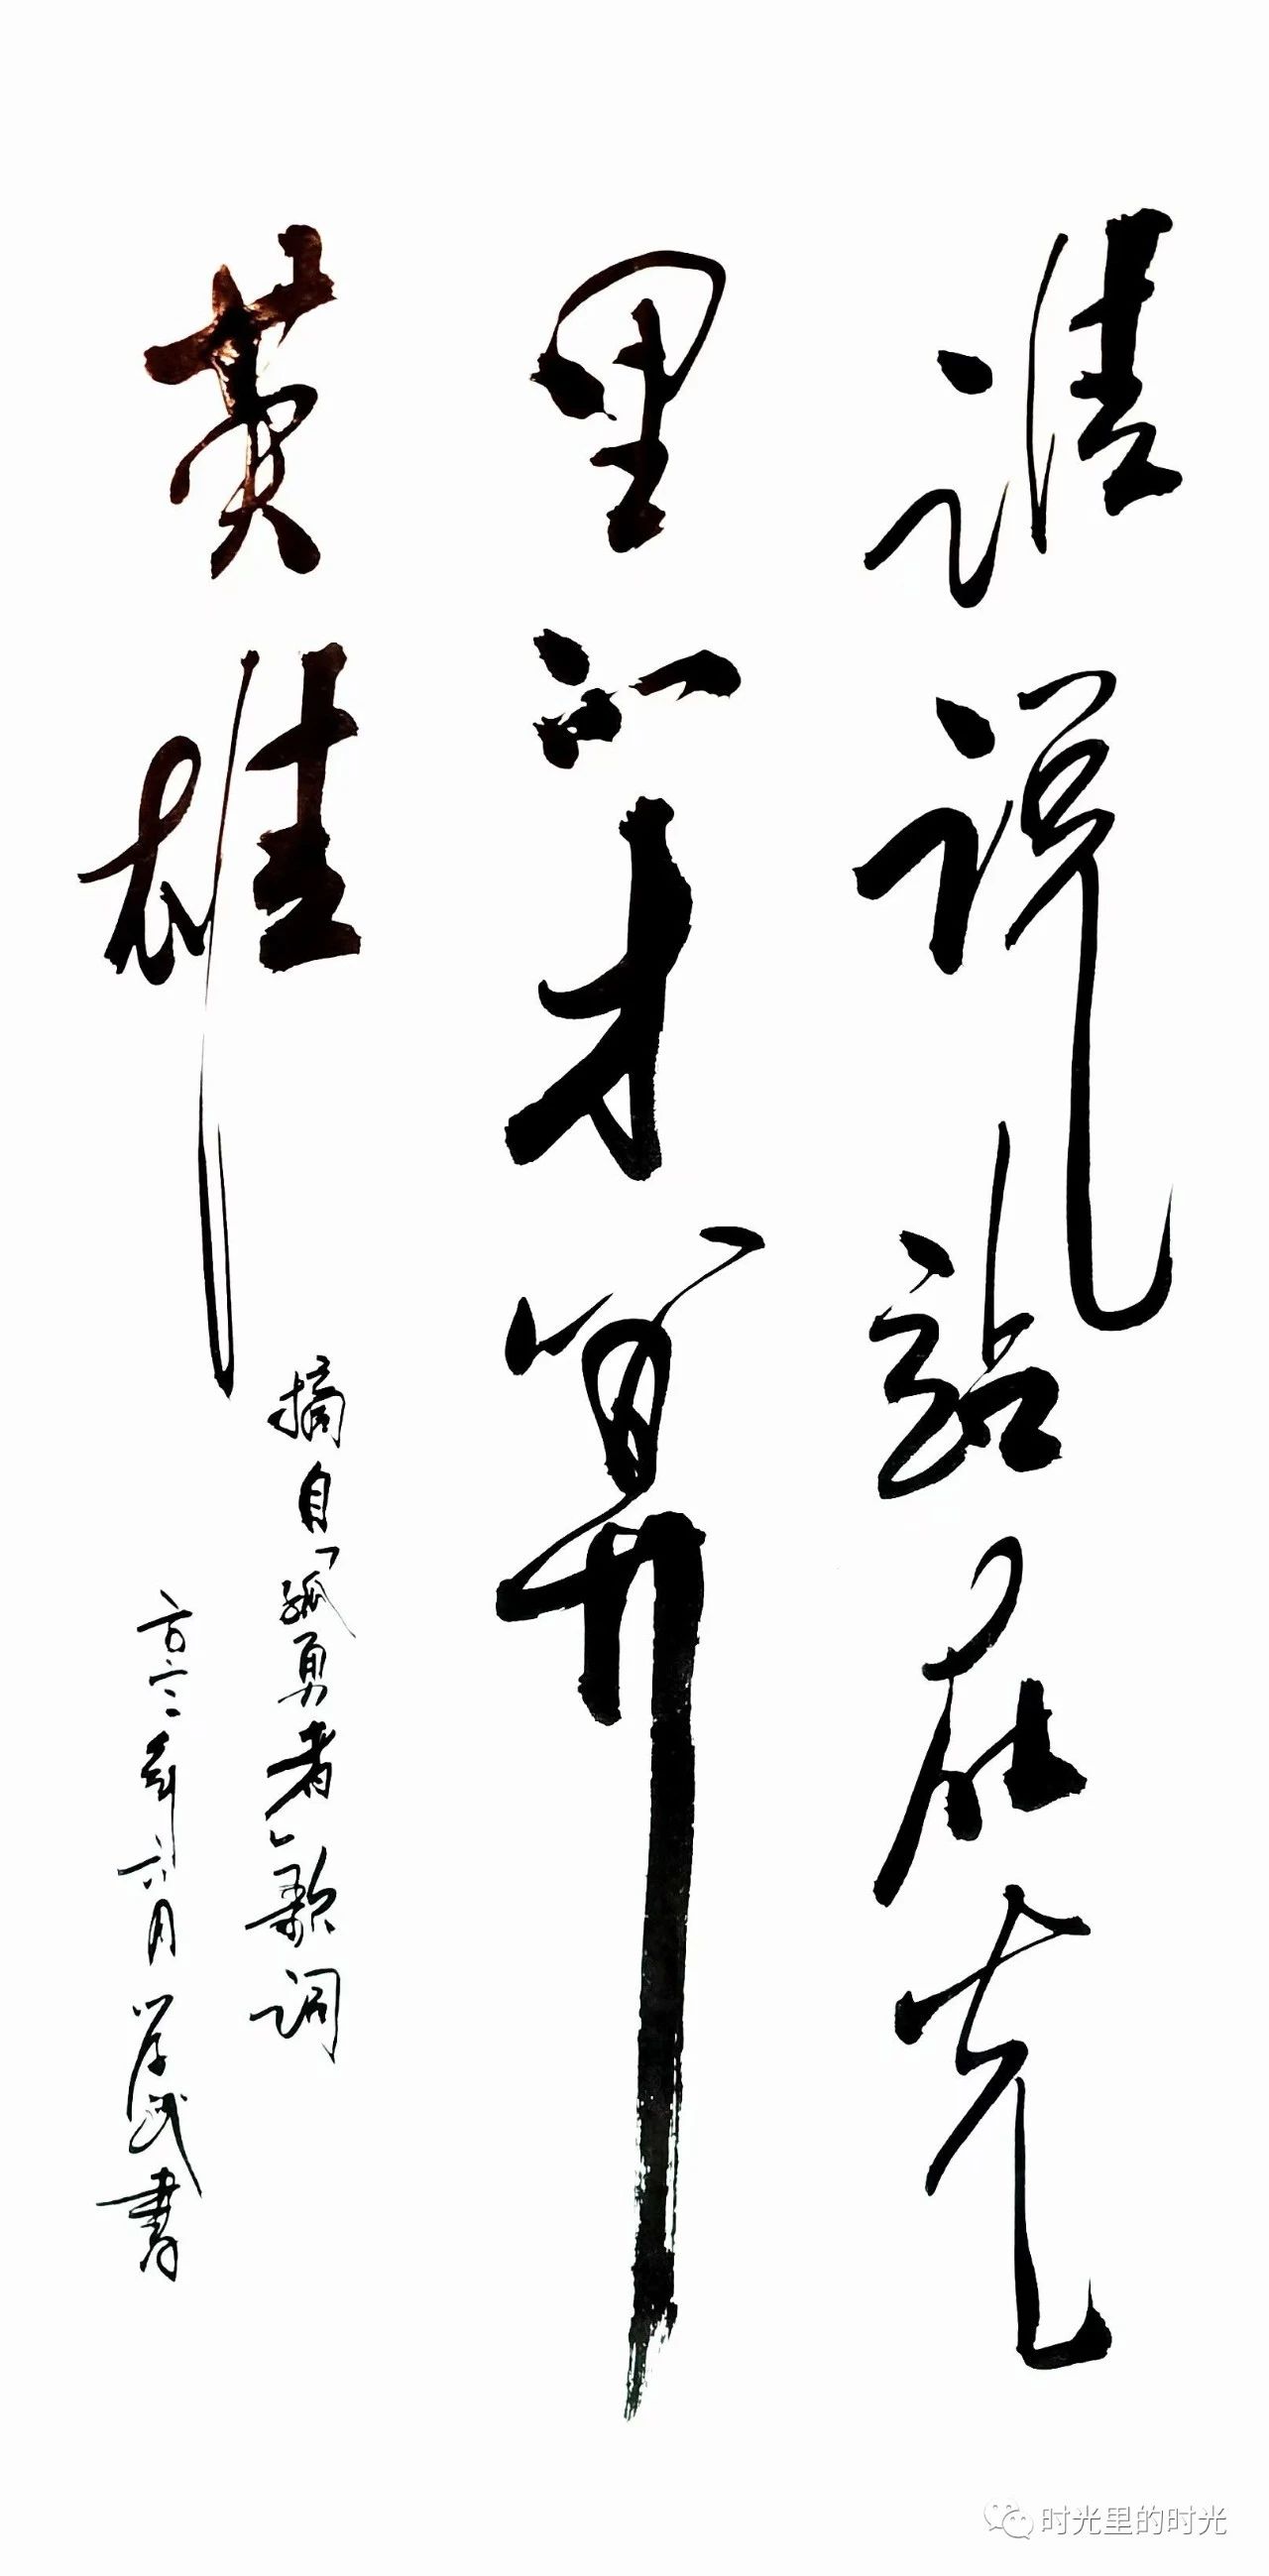 谁说站在光
里的才算
英雄
摘自「孤勇者」歌词
二〇二二年六月学武书
时光里的时光